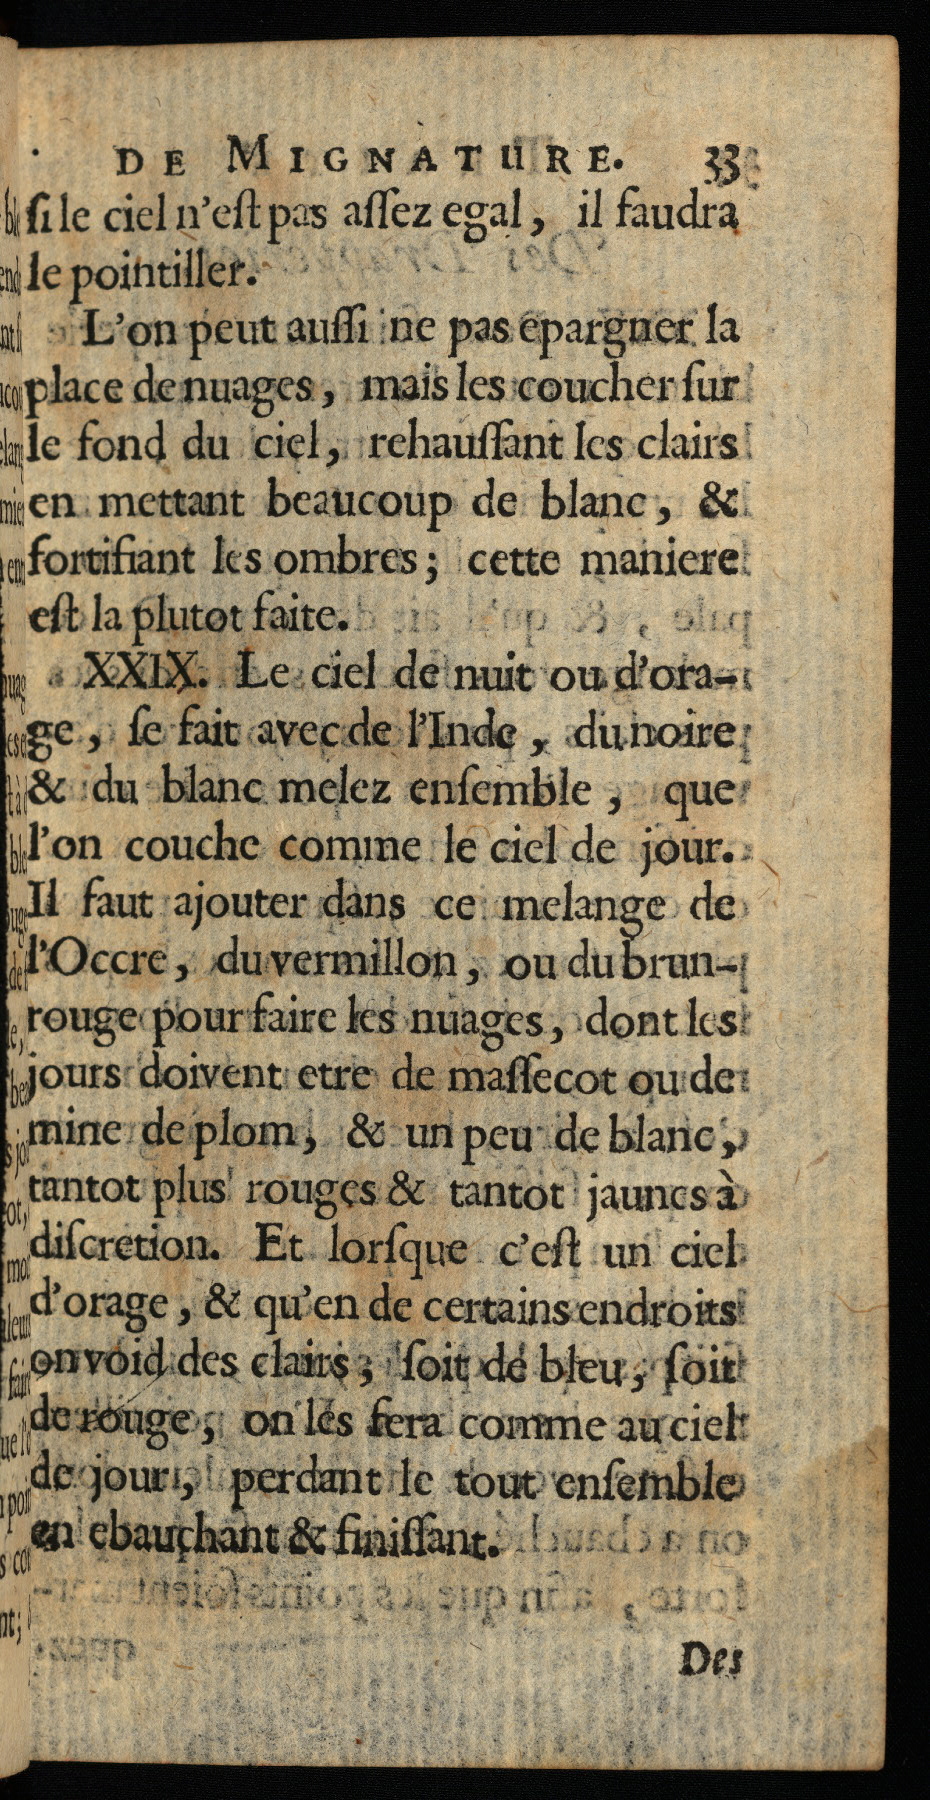 DE MIGNATURE. 33
ſi le ciel n'eſt pas aſſez egal, il faudra
le pointiller.
L'on peut auſſi ne pas epargner la
place de nuages, mais les coucher ſur
le fond du ciel, rehauſſant les clairs
en mettant beaucoup de blanc, &
fortifiant les ombres; cette maniere
eſt la plutot faite.
XXIX. Le ciel de nuit ou d'ora-
ge, ſe fait avec de l'Inde, du noire
& du blanc melez enſemble, que
l'on couche comme le ciel de jour.
Il faut ajouter dans ce melange de
l'Occre, du vermillon, ou du brun-
rouge pour faire les nuages, dont les
jours doivent etre de maſſecot ou de
mine de plom, & un peu de blanc,
tantot plus rouges & tantot jaunes à
diſcretion. Et lorſque c'eſt un ciel
d'orage, & qu'en de certains endroits
on void des clairs; ſoit de bleu, ſoit
de rouge, on les fera comme au ciel
de jour, perdant le tout enſemble
en ebauçhant & finiſſant.
Des